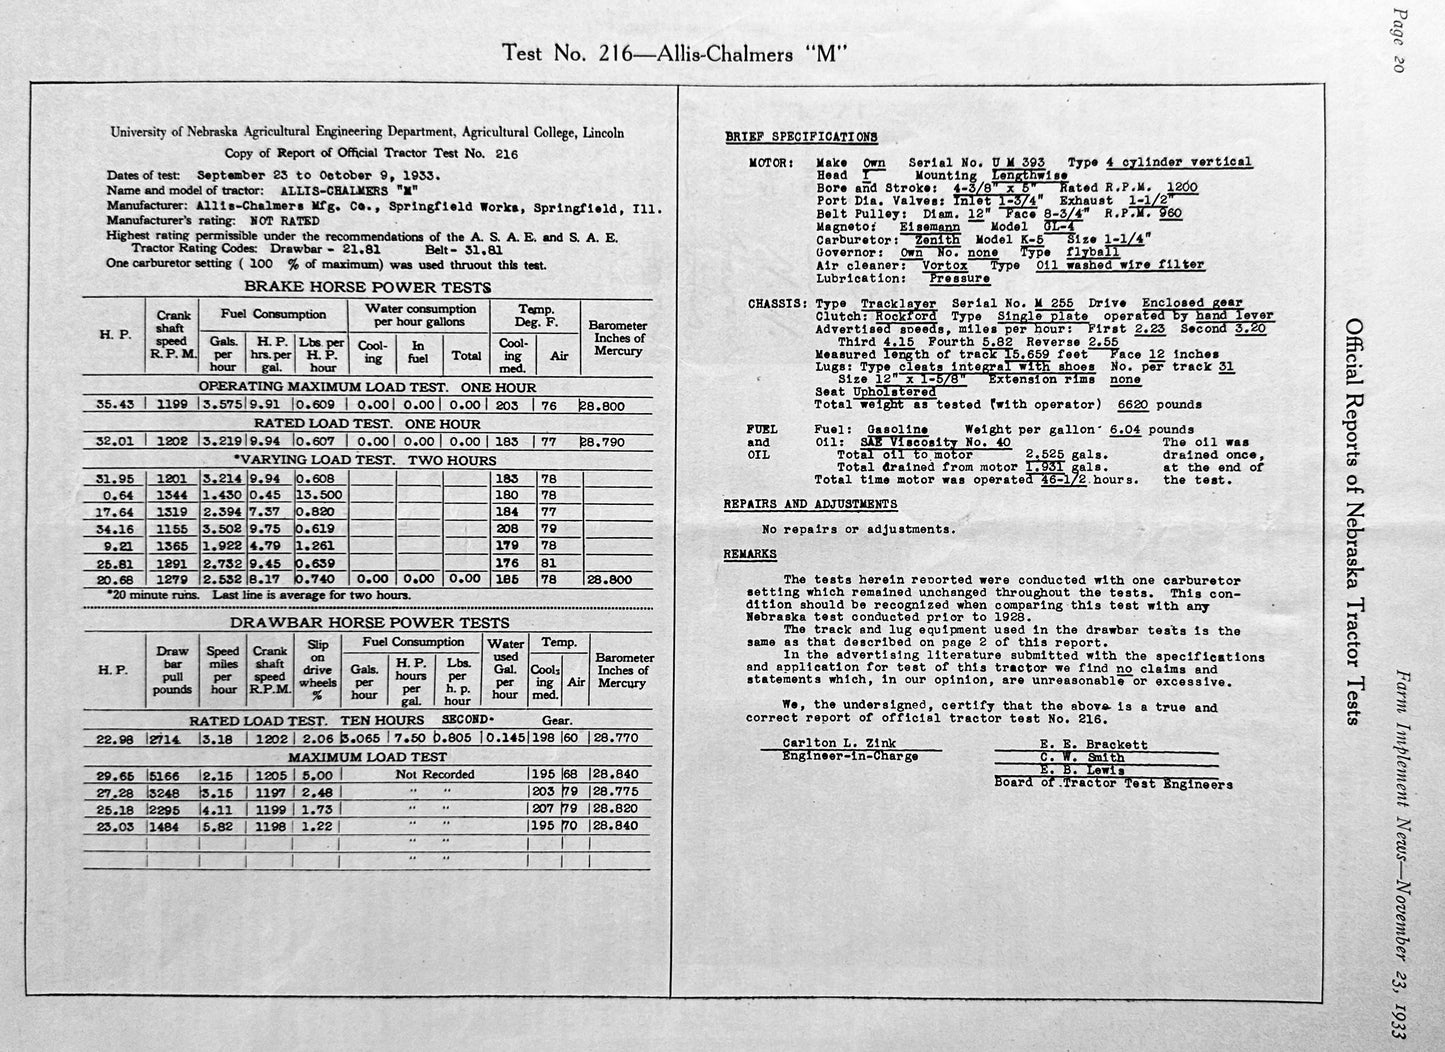 Page 20
Test No. 216—Allis-Chalmers "M"
University of Nebraska Agricultural Engineering Department, Agricultural College, Lincoln
Copy of Report of Official Tractor Test No. 216
Dates of test: September 23 to October 9, 1933.
Name and model of tractor: ALLIS-CHALMERS "M"
Manufacturer: Allis-Chalmers Mfg. Co., Springfield Works, Springfield, Ill.
Manufacturer's rating: NOT RATED
Highest rating permissible under the recommendations of the A. S. A. E. and S. A. E.
Tractor Rating Codes: Drawbar - 21.81 Belt- 31.81
One carburetor setting ( 100 % of maximum) was used thruout this test.
BRAKE HORSE POWER TESTS
H. P. | Crank shaft speed R. P. M. | Fuel Consumption | Water consumption per hour gallons | Temp. Deg. F. | Barometer Inches of Mercury
Gals. per hour | H. P. hrs. per gal. | Lbs. per H. P. hour | Cool- ing | In fuel | Total | Cool- ing med. | Air
OPERATING MAXIMUM LOAD TEST. ONE HOUR
35.43 | 1199 | 3.575 | 9.91 | 0.609 | 0.00 | 0.00 | 0.00 | 203 | 76 | 28.800
RATED LOAD TEST. ONE HOUR
32.01 | 1202 | 3.219 | 9.94 | 0.607 | 0.00 | 0.00 | 0.00 | 183 | 77 | 28.790
*VARYING LOAD TEST. TWO HOURS
31.95 | 1201 | 3.214 | 9.94 | 0.608 | 183 | 78
0.64 | 1344 | 1.430 | 0.45 | 13.500 | 180 | 78
17.64 | 1319 | 2.394 | 7.37 | 0.820 | 184 | 77
34.16 | 1155 | 3.502 | 9.75 | 0.619 | 208 | 79
9.21 | 1365 | 1.922 | 4.79 | 1.261 | 179 | 78
25.81 | 1291 | 2.732 | 9.45 | 0.639 | 176 | 81
20.68 | 1279 | 2.532 | 8.17 | 0.740 | 0.00 | 0.00 | 0.00 | 185 | 78 | 28.800
*20 minute runs. Last line is average for two hours.
DRAWBAR HORSE POWER TESTS
H. P. | Draw bar pull pounds | Speed miles per hour | Crank shaft speed R.P.M. | Slip on drive wheels % | Fuel Consumption | Water used Gal. per hour | Temp. | Barometer Inches of Mercury
Gals. per hour | H. P. hours per gal. | Lbs. per h. p. hour | Cool- ing med. | Air
RATED LOAD TEST. TEN HOURS SECOND- Gear.
22.98 | 2714 | 3.18 | 1202 | 2.06 | 3.065 | 7.50 | 0.805 | 0.145 | 198 | 60 | 28.770
MAXIMUM LOAD TEST
29.65 | 5166 | 2.15 | 1205 | 5.00 | Not Recorded | 195 | 68 | 28.840
27.28 | 3248 | 3.15 | 1197 | 2.48 | " " | 203 | 79 | 28.775
25.18 | 2295 | 4.11 | 1199 | 1.73 | " " | 207 | 79 | 28.820
23.03 | 1484 | 5.82 | 1198 | 1.22 | " " | 195 | 70 | 28.840
" "
" "
BRIEF SPECIFICATIONS
MOTOR: Make Own Serial No. U M 393 Type 4 cylinder vertical
Head I Mounting Lengthwise
Bore and Stroke: 4-3/8" x 5" Rated R.P.M. 1200
Port Dia. Valves: Inlet 1-3/4" Exhaust 1-1/2"
Belt Pulley: Diam. 12" Face 8-3/4" R.P.M. 960
Magneto: Eisemann Model GL-4
Carburetor: Zenith Model K-5 Size 1-1/4"
Governor: Own No. none Type flyball
Air cleaner: Vortox Type Oil washed wire filter
Lubrication: Pressure
CHASSIS: Type Tracklayer Serial No. M 255 Drive Enclosed gear
Clutch: Rockford Type Single plate operated by hand lever
Advertised speeds, miles per hour: First 2.23 Second 3.20
Third 4.15 Fourth 5.82 Reverse 2.55
Measured length of track 15.659 feet Face 12 inches
Lugs: Type cleats integral with shoes No. per track 31
Size 12" x 1-5/8" Extension rims none
Seat Upholstered
Total weight as tested (with operator) 6620 pounds
FUEL Fuel: Gasoline Weight per gallon 6.04 pounds
and Oil: SAE Viscosity No. 40 The oil was
OIL Total oil to motor 2.525 gals. drained once,
Total drained from motor 1.931 gals. at the end of
Total time motor was operated 46-1/2 hours. the test.
REPAIRS AND ADJUSTMENTS
No repairs or adjustments.
REMARKS
The tests herein reported were conducted with one carburetor
setting which remained unchanged throughout the tests. This con-
dition should be recognized when comparing this test with any
Nebraska test conducted prior to 1928.
The track and lug equipment used in the drawbar tests is the
same as that described on page 2 of this report.
In the advertising literature submitted with the specifications
and application for test of this tractor we find no claims and
statements which, in our opinion, are unreasonable or excessive.
We, the undersigned, certify that the above is a true and
correct report of official tractor test No. 216.
Carlton L. Zink
Engineer-in-Charge
E. E. Brackett
C. W. Smith
E. B. Lewis
Board of Tractor Test Engineers
Official Reports of Nebraska Tractor Tests
Farm Implement News—November 23, 1933